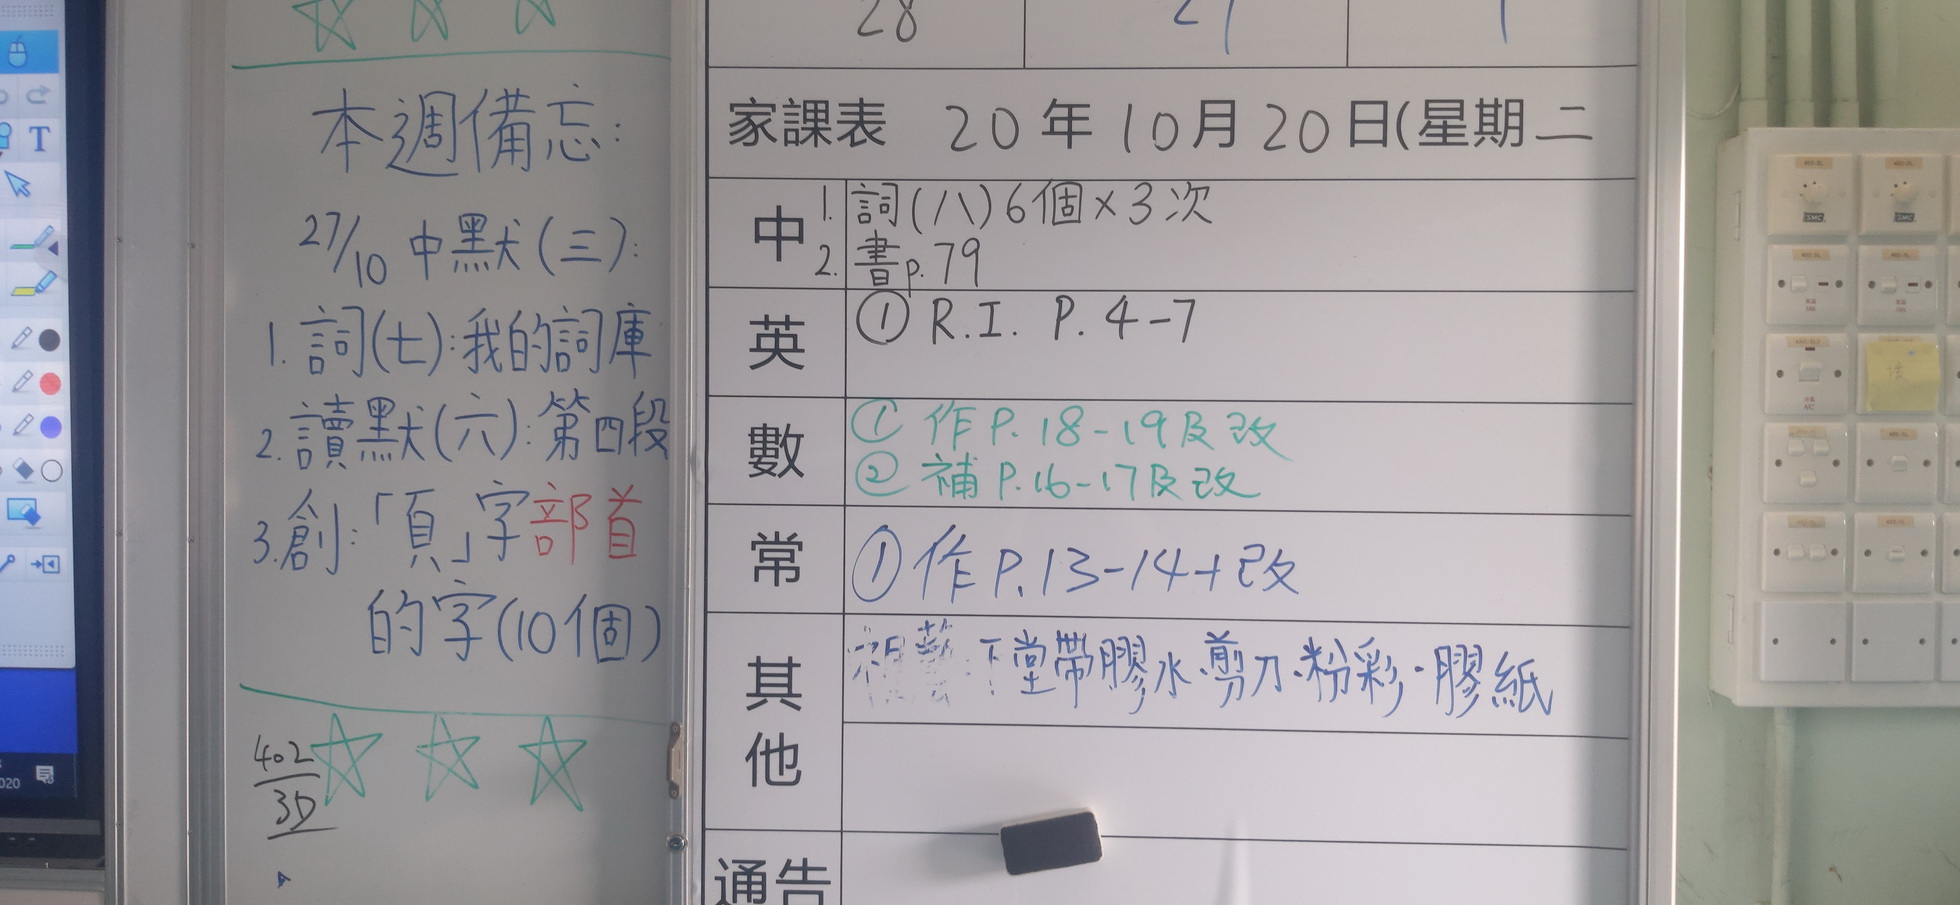 本週備忘:
27/10 中默(三):
1. 詞(七):我的詞庫
2. 讀默(六):第四段
3. 創:「頁」字部首
的字(10個)
402
3D
T
020
28
家課表 20年10月20日(星期二
中
1. 詞(八)6個×3次
2. 書p.79
英
① R.I. P.4-7
數
① 作P.18-19及改
② 補P.16-17及改
常
① 作P.13-14+改
其他
視藝:下堂帶膠水、剪刀、粉彩、膠紙
通告